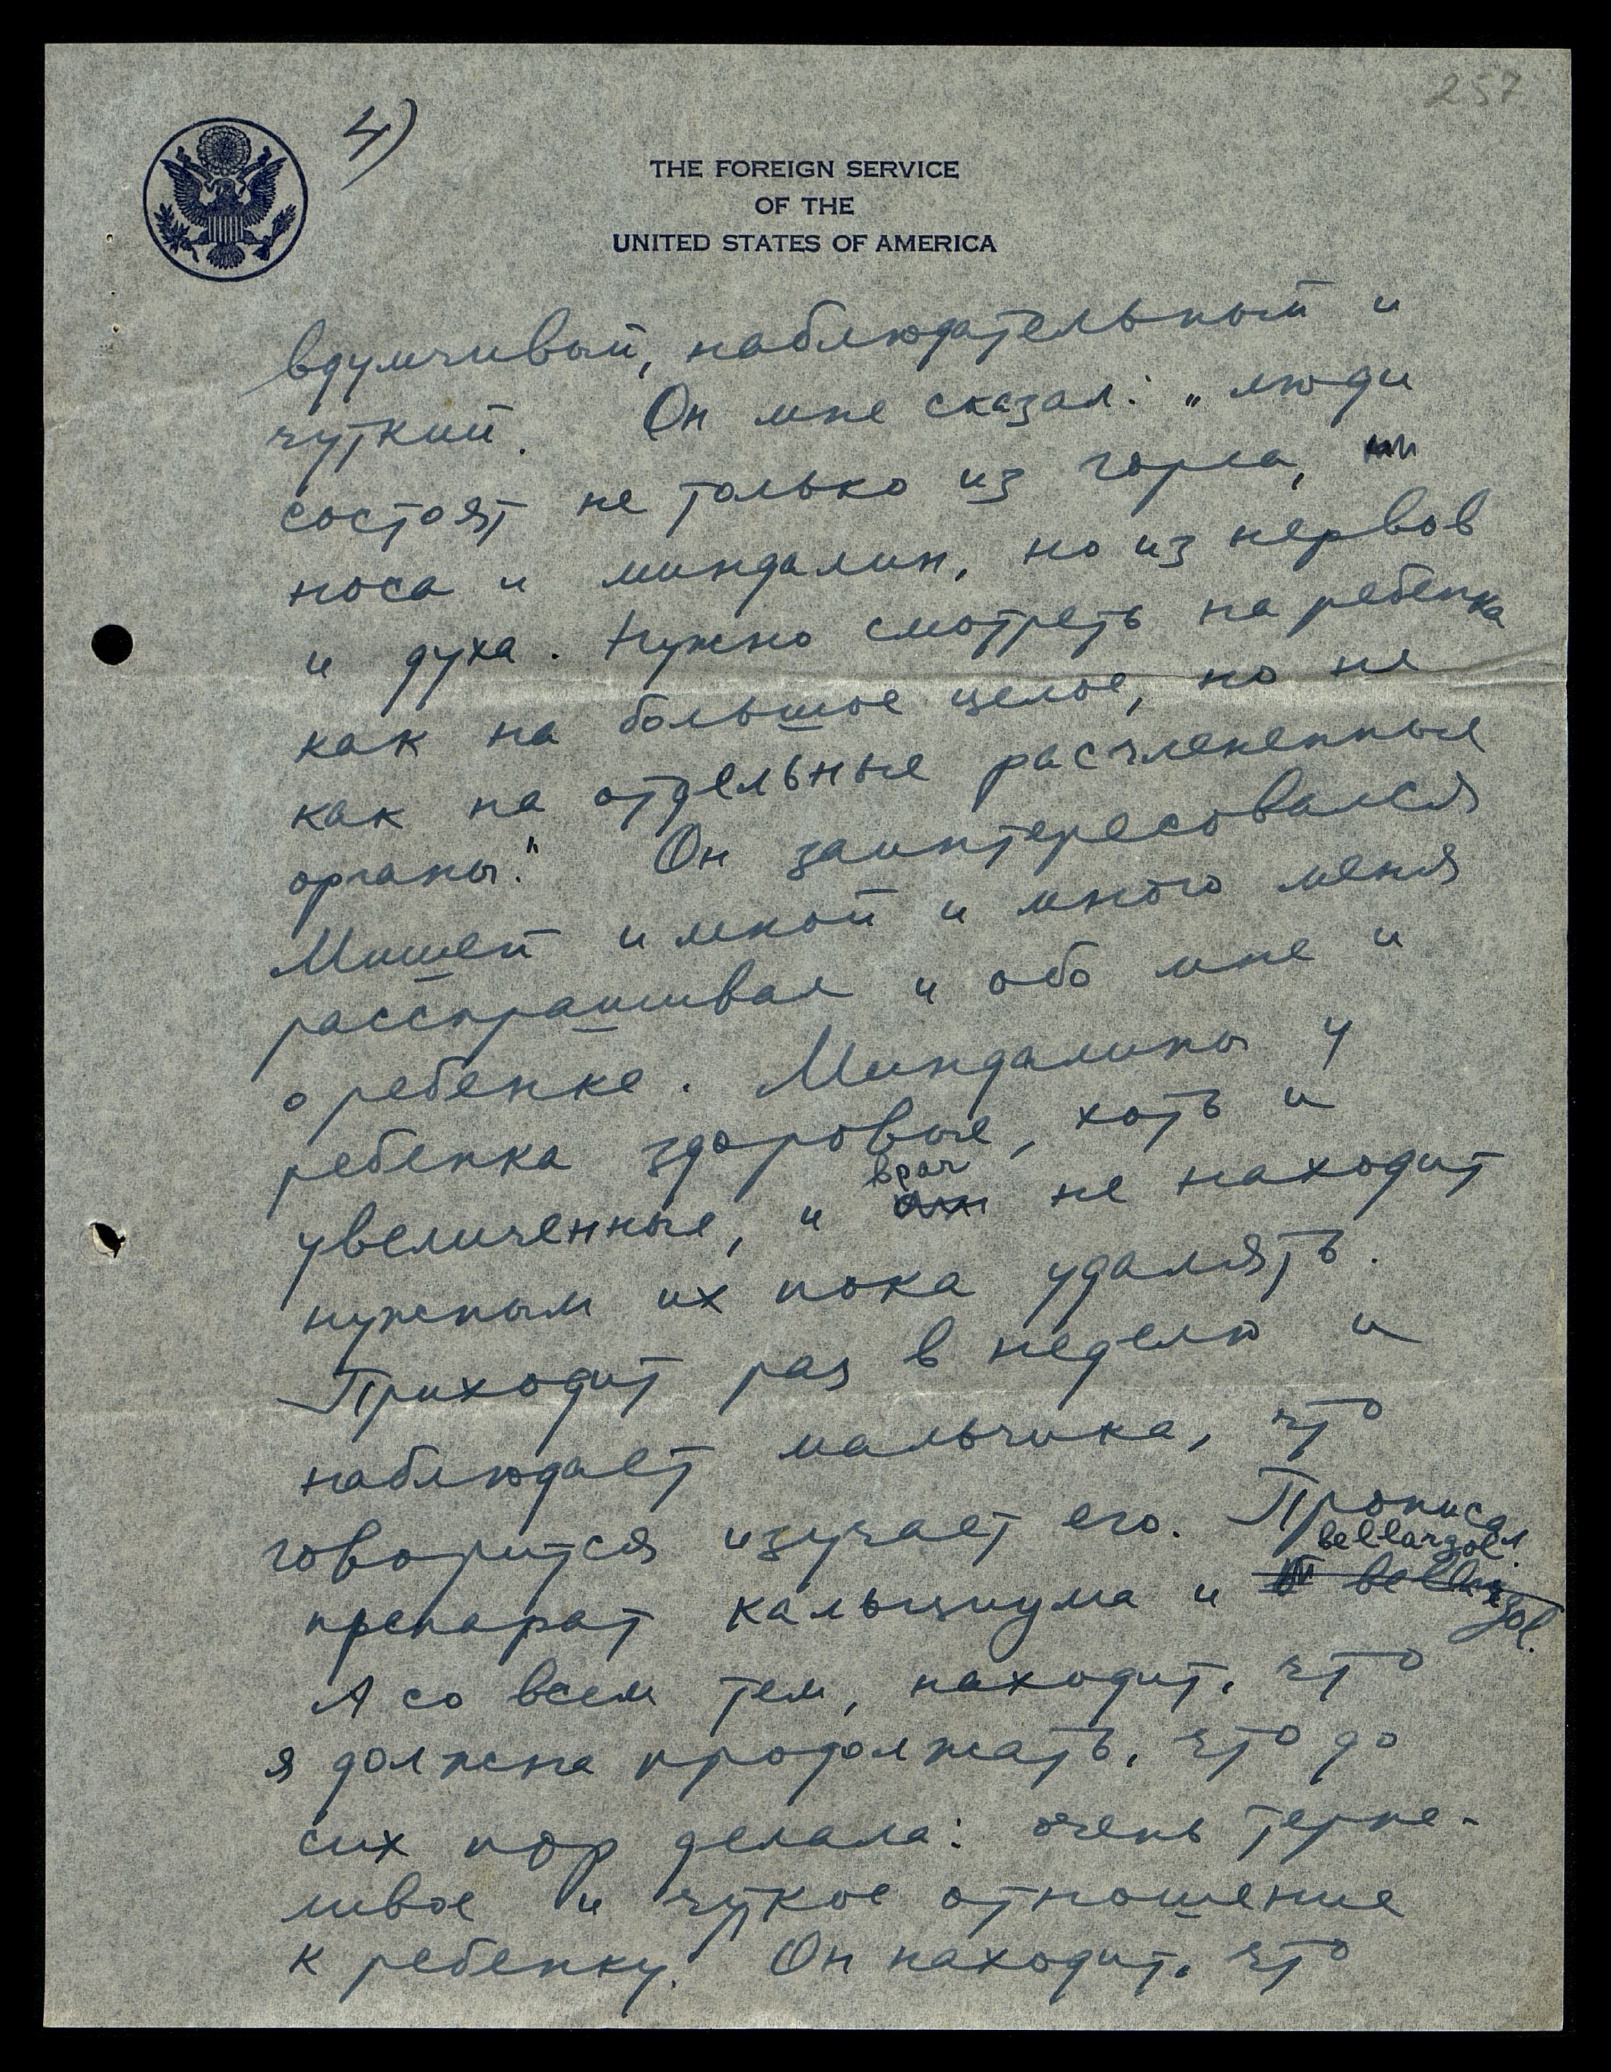 257
4)
THE FOREIGN SERVICE
OF THE
UNITED STATES OF AMERICA
вдумчивый, наблюдательный и
чуткий. Он мне сказал: „люди
состоят не только из горла,
носа и миндалин, но из нервов
и духа. Нужно смотреть на ребенка
как на большое целое, но не
как на отдельные расчлененные
органы." Он заинтересовался
Мишей и мной и много меня
расспрашивал и обо мне и
о ребенке. Миндалины у
ребенка здоровые, хоть и
увеличенные, и врач не находит
нужным их пока удалять.
Приходит раз в неделю и
наблюдает мальчика, что
говорится изучает его. Прописал
препарат кальциума и bellargol.
А со всем тем, находит, что
я должна продолжать, что до
сих пор делала: очень терпе-
ливое и чуткое отношение
к ребенку. Он находит, что